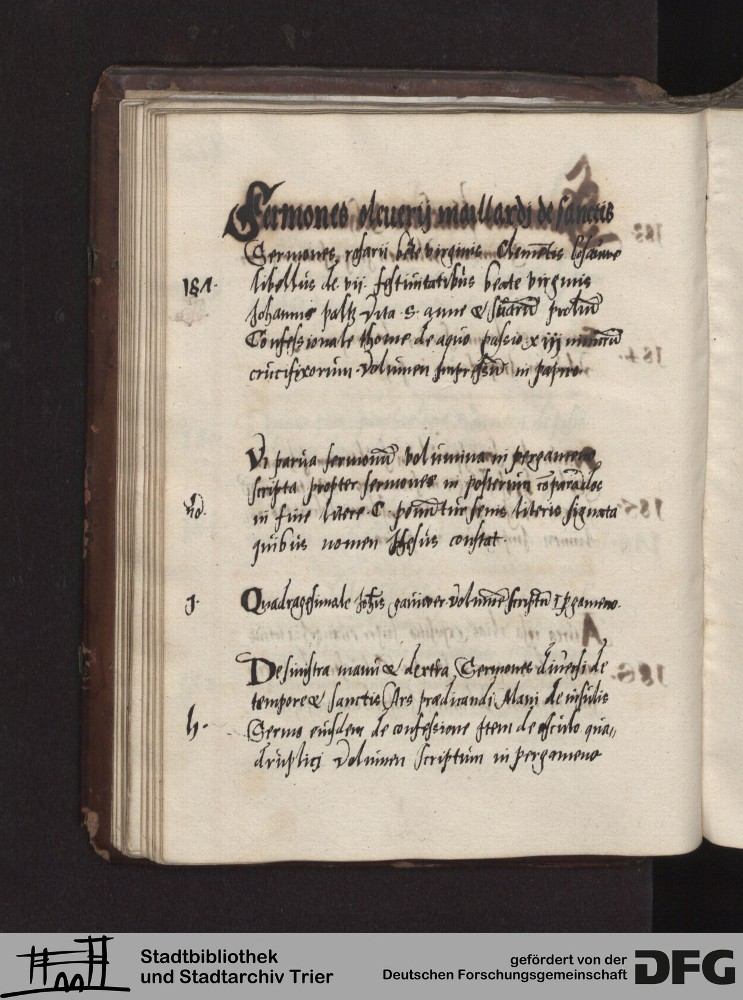 Sermones oleuerij maillardi de sanctis
Sermones rosarii bte virginis Clementis
181. libellus de vij festiuitatibus beate virginis
Johannis paltz Vita S. anne &
Confessionale thome de aquo passio x iij
crucifixorum Volumen Impressū in papiro
Vi parua sermonū volumina in pergameno
scripta propter sermones in posterum
in fine litere C. ponūtur senis literis signata
quibus nomen Ihesus constat.
g. Quadragesimale Johis gauwer Volumē scriptū ī pgameno.
De sinistra manu & dextra Sermones diuersi de
tempore & sanctis Ars prædicandi Alani de insulis
h. Sermo eiusdem de confessione Item de osculo qua„
druplici Volumen scriptum in pergameno
Stadtbibliothek
und Stadtarchiv Trier
gefördert von der
Deutschen Forschungsgemeinschaft
DFG